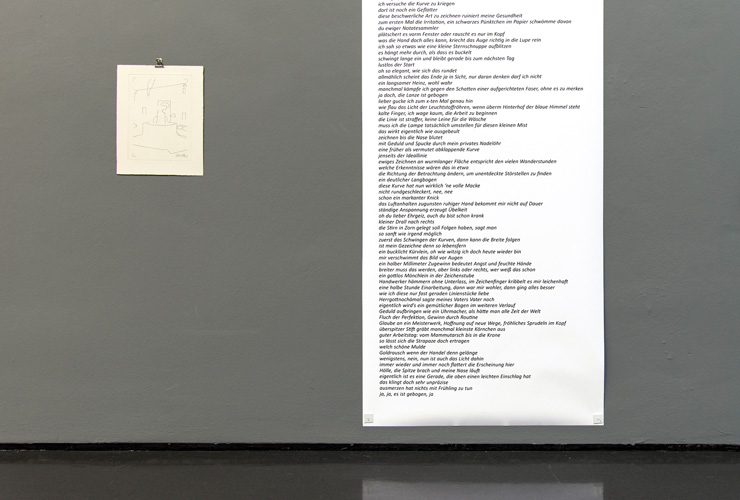 ich versuche die Kurve zu kriegen
dort ist noch ein Geflatter
diese beschwerliche Art zu zeichnen ruiniert meine Gesundheit
zum ersten Mal die Irritation, ein schwarzes Pünktchen im Papier schwömme davon
du ewiger Notatesammler
plätschert es vorm Fenster oder rauscht es nur im Kopf
was die Hand doch alles kann, kriecht das Auge richtig in die Lupe rein
ich sah so etwas wie eine kleine Sternschnuppe aufblitzen
es hängt mehr durch, als dass es buckelt
schwingt lange ein und bleibt gerade bis zum nächsten Tag
lustlos der Start
oh so elegant, wie sich das rundet
allmählich scheint das Ende ja in Sicht, nur daran denken darf ich nicht
ein langsamer Heinz, wohl wahr
manchmal kämpfe ich gegen den Schatten einer aufgerichteten Faser, ohne es zu merken
ja doch, die Lanze ist gebogen
lieber gucke ich zum x-ten Mal genau hin
wie flau das Licht der Leuchtstoffröhren, wenn überm Hinterhof der blaue Himmel steht
kalte Finger, ich wage kaum, die Arbeit zu beginnen
die Linie ist straffer, keine Leine für die Wäsche
muss ich die Lampe tatsächlich umstellen für diesen kleinen Mist
das wirkt eigentlich wie ausgebeult
zeichnen bis die Nase blutet
mit Geduld und Spucke durch mein privates Nadelöhr
eine früher als vermutet abklappende Kurve
jenseits der Ideallinie
ewiges Zeichnen an wurmlanger Fläche entspricht den vielen Wanderstunden
welche Erkenntnisse wären das in etwa
die Richtung der Betrachtung ändern, um unentdeckte Störstellen zu finden
ein deutlicher Langbogen
diese Kurve hat nun wirklich 'ne volle Macke
nicht rundgeschleckert, nee, nee
schon ein markanter Knick
das Luftanhalten zugunsten ruhiger Hand bekommt mir nicht auf Dauer
ständige Anspannung erzeugt Übelkeit
oh du lieber Ehrgeiz, auch du bist schon krank
kleiner Drall nach rechts
die Stirn in Zorn gelegt soll Folgen haben, sagt man
so sanft wie irgend möglich
zuerst das Schwingen der Kurven, dann kann die Breite folgen
ist mein Gezeichne denn so lebensfern
ein bucklicht Kürvlein, oh wie witzig ich doch heute wieder bin
mir verschwimmt das Bild vor Augen
ein halber Millimeter Zugewinn bedeutet Angst und feuchte Hände
breiter muss das werden, aber links oder rechts, wer weiß das schon
ein gottlos Mönchlein in der Zeichenstube
Handwerker hämmern ohne Unterlass, im Zeichenfinger kribbelt es mir leichenhaft
eine halbe Stunde Einarbeitung, dann war mir wohler, dann ging alles besser
wie ich diese nur fast geraden Linienstücke liebe
Herrgottnochämal sagte meines Vaters Vater noch
eigentlich wird's ein gemütlicher Bogen im weiteren Verlauf
Geduld aufbringen wie ein Uhrmacher, als hätte man alle Zeit der Welt
Fluch der Perfektion, Gewinn durch Routine
Glaube an ein Meisterwerk, Hoffnung auf neue Wege, fröhliches Sprudeln im Kopf
überspitzer Stift gräbt manchmal kleinste Körnchen aus
guter Arbeitstag: vom Mammutarsch bis in die Krone
so lässt sich die Strapaze doch ertragen
welch schöne Mulde
Goldrausch wenn der Handel denn gelänge
wenigstens, nein, nun ist auch das Licht dahin
immer wieder und immer noch flattert die Erscheinung hier
Hölle, die Spitze brach und meine Nase läuft
eigentlich ist es eine Gerade, die oben einen leichten Einschlag hat
das klingt doch sehr unpräzise
ausmerzen hat nichts mit Frühling zu tun
ja, ja, es ist gebogen, ja